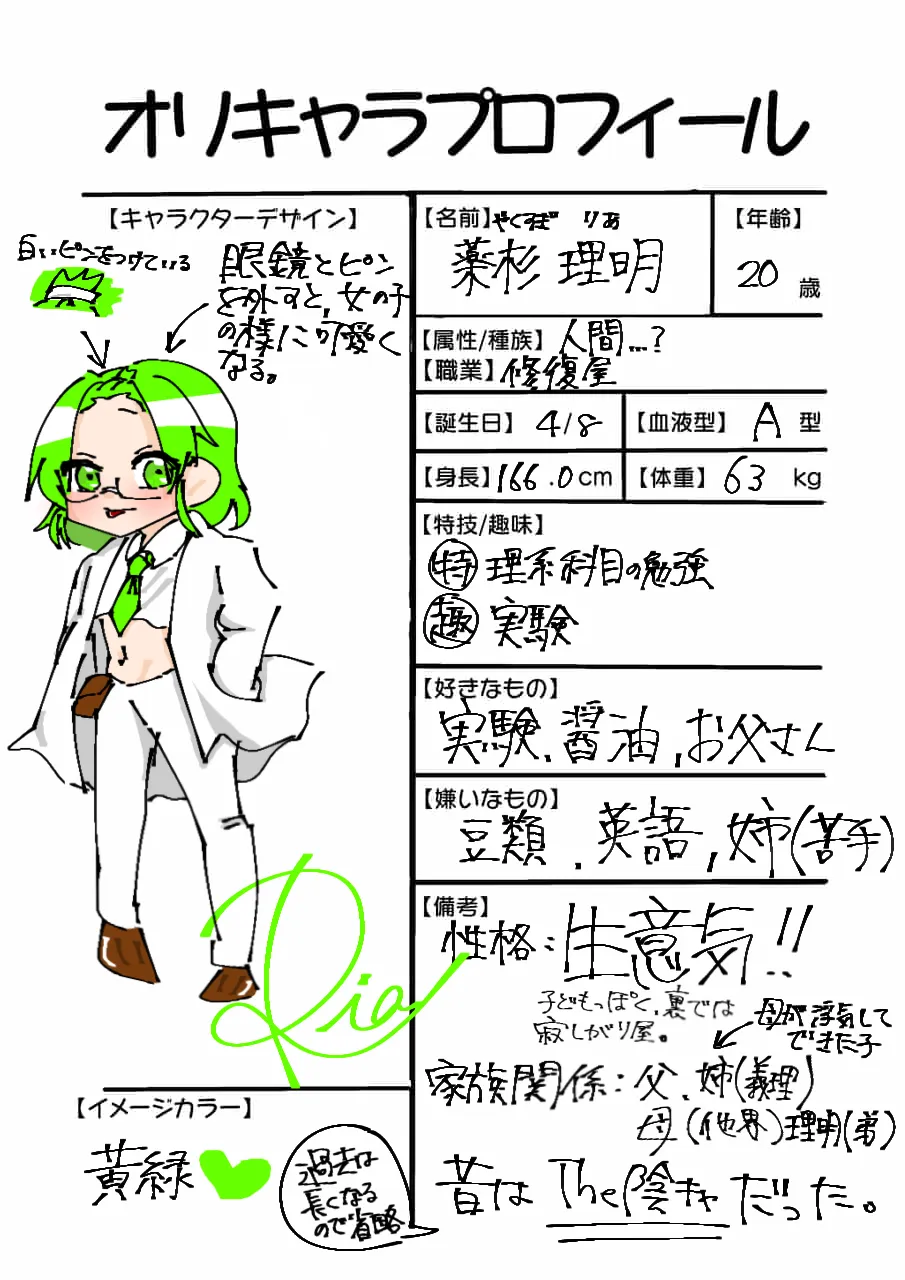 オリキャラプロフィール
【キャラクターデザイン】
白いピンをつけている
眼鏡とピン
を外すと,女の子
の様に可愛く
なる。
【名前】やくすぎ りあ
薬杉 理明
【年齢】
20歳
【属性/種族】人間...?
【職業】修復屋
【誕生日】4/8
【血液型】A型
【身長】166.0cm
【体重】63kg
【特技/趣味】
特 理系科目の勉強
趣 実験
【好きなもの】
実験,醤油,お父さん
【嫌いなもの】
豆類,英語,姉(苦手)
【備考】
性格:生意気!!
子どもっぽく,裏では
寂しがり屋。
母が浮気して
できた子
家族関係:父,姉(義理)
母(他界)理明(弟)
昔はThe陰キャだった。
Ria
【イメージカラー】
黄緑
過去は
長くなる
ので省略